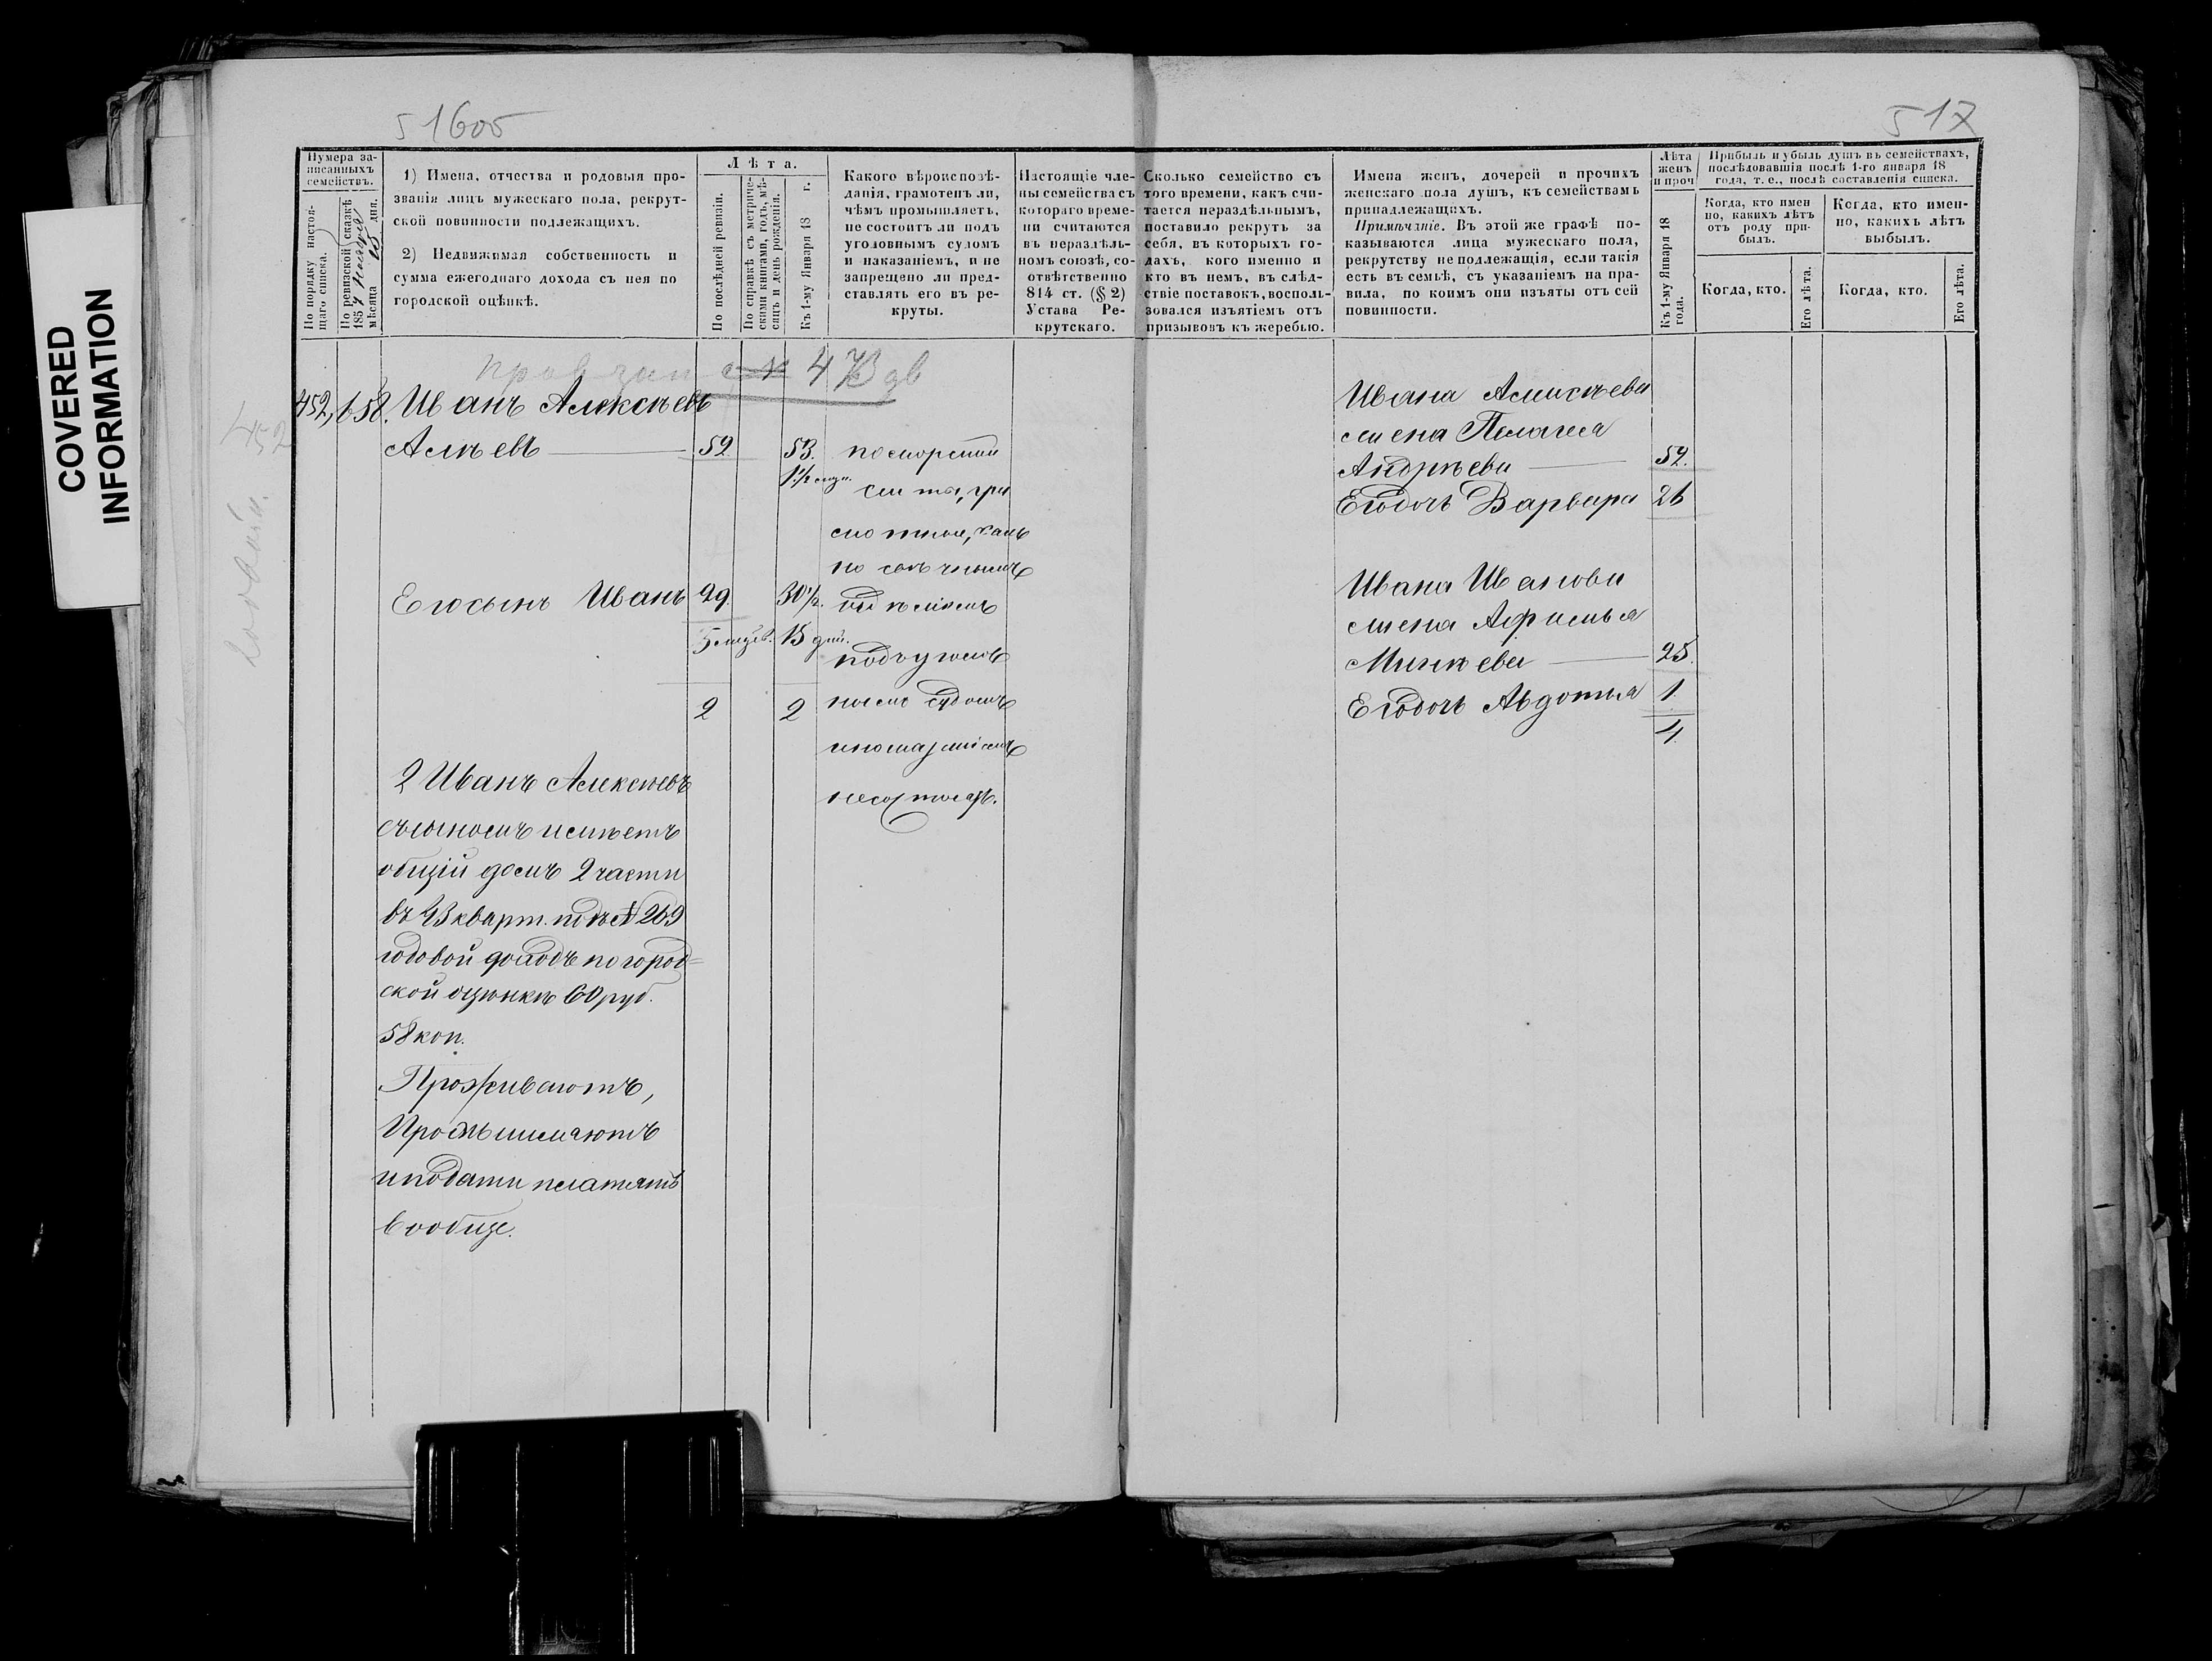 51605
517
COVERED
INFORMATION
Нумера за-
писанныхъ
семействъ.
По порядку настоя-
щаго списка.
По ревизской сказкѣ
1857
мѣсяца 15 дня.
1) Имена, отчества и родовыя про-
званія лицъ мужескаго пола, рекрут-
ской повинности подлежащихъ.
2) Недвижимая собственность и
сумма ежегоднаго дохода съ нея по
городской оцѣнкѣ.
Лѣта.
По послѣдней ревизіи.
По справкѣ съ метриче-
скими книгами, годъ, мѣ-
сяцъ и день рожденія.
Къ 1-му Января 18 г.
Какого вѣроисповѣ-
данія, грамотенъ ли,
чѣмъ промышляетъ,
не состоитъ ли подъ
уголовнымъ судомъ
и наказаніемъ, и не
запрещено ли пред-
ставлять его въ ре-
круты.
Настоящіе чле-
ны семейства съ
котораго време-
ни считаются
въ нераздѣль-
номъ союзѣ, со-
отвѣтственно
814 ст. (§ 2)
Устава Ре-
крутскаго.
Сколько семейство съ
того времени, какъ счи-
тается нераздѣльнымъ,
поставило рекрутъ за
себя, въ которыхъ го-
дахъ, кого именно и
кто въ немъ, въ слѣд-
ствіе поставокъ, восполь-
зовался изъятіемъ отъ
призывовъ къ жеребью.
Имена женъ, дочерей и прочихъ
женскаго пола душъ, къ семействамъ
принадлежащихъ.
Примѣчаніе. Въ этой же графѣ по-
казываются лица мужескаго пола,
рекрутству не подлежащія, если такія
есть въ семьѣ, съ указаніемъ на пра-
вила, по коимъ они изъяты отъ сей
повинности.
Лѣта
женъ
и проч
Къ 1-му Января 18
года.
Прибыль и убыль душъ въ семействахъ,
послѣдовавшія послѣ 1-го января 18
года, т. е., послѣ составленія списка.
Когда, кто имен
но, какихъ лѣтъ
отъ роду при-
былъ.
Когда, кто имен-
но, какихъ лѣтъ
выбылъ.
Когда, кто.
Его лѣта.
Когда, кто.
Его лѣта.
452
452, 658. Иванъ Алексѣевъ
59 53.
1½
Его сынъ Иванъ 29. 30½.
5 15 дн.
2 2
подъ уголов
нымъ судомъ
и наказаніемъ
не состоятъ.
2 Иванъ Алексѣевъ
съ сыномъ имѣетъ
общій домъ 2 части
въ 43 кварт. подъ № 269
годовой доходъ по город=
ской оцѣнкѣ 60 руб.
58 коп.
Проживаютъ,
Промышляютъ
и подати платятъ
вообще.
Ивана Алексѣева
жена Пелагея
Андрѣева 52.
Его дочь Варвара 26
Ивана Иванова
жена Афимья
25.
Его дочь Авдотья 1
4.